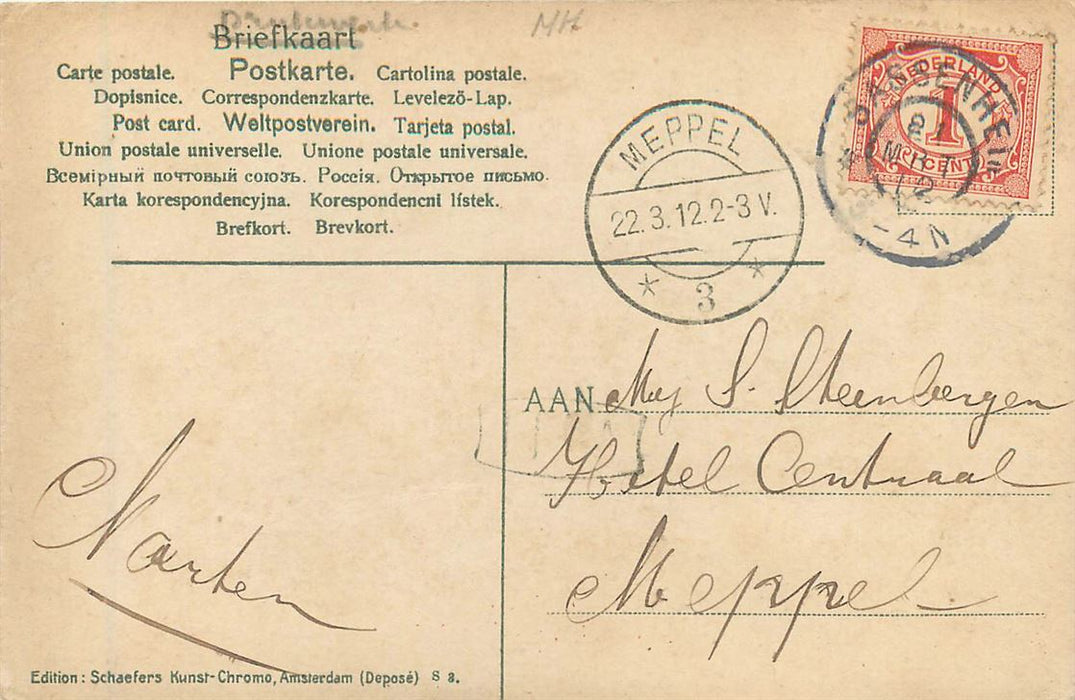 Drukwerk.
MH
Briefkaart
Carte postale. Postkarte. Cartolina postale.
Dopisnice. Correspondenzkarte. Levelezõ-Lap.
Post card. Weltpostverein. Tarjeta postal.
Union postale universelle. Unione postale universale.
Всемірный почтовый союзъ. Россія. Открытое письмо.
Karta korespondencyjna. Korespondencni lístek.
Brefkort. Brevkort.
MEPPEL
22.3.12.2-3 V.
* 3 *
NEDERLAND
1
CENT
MRT
12
-4N
AAN Mej S. Steenbergen
Hotel Centraal
Meppel
Marten
Edition: Schaefers Kunst-Chromo, Amsterdam (Deposé) S 8.